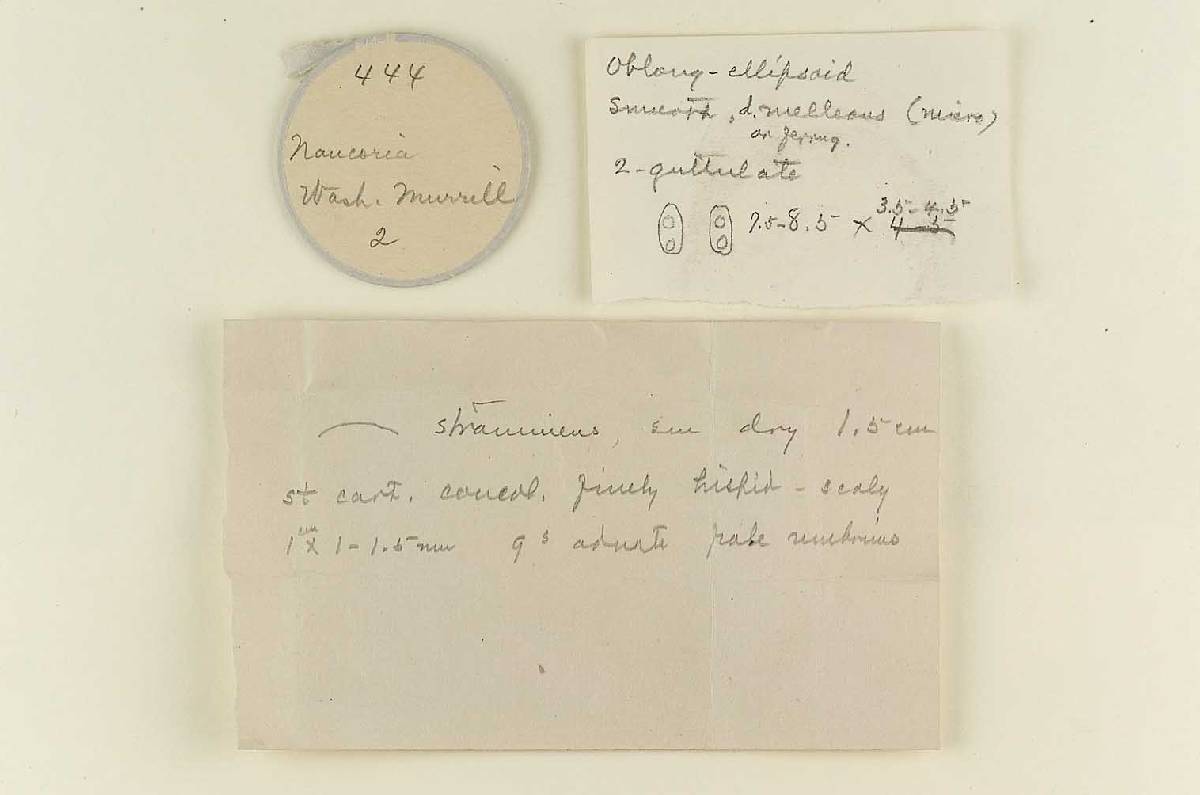 444
Naucoria
Wash. Murrill
2
Oblong-ellipsoid
Smooth, d. melleous (micro)
or ferrug.
2-guttulate
3.5-4.5
7.5-8.5 × 4-5
stramineus, sm dry 1.5 cm
st cart. concol. finely hispid-scaly
1 cm × 1-1.5 mm gs adnate pale umbrinus